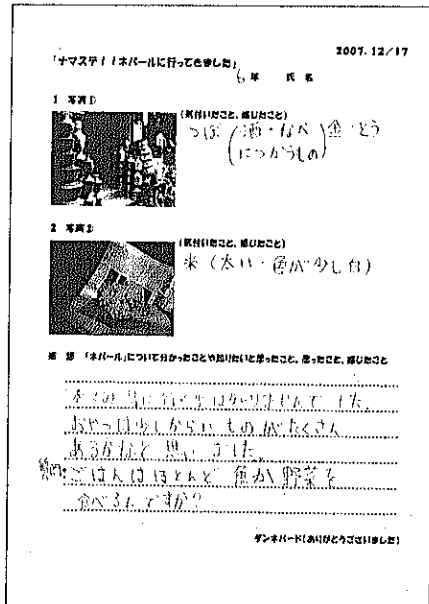 2007.12/17
「ナマステ！！ネパールに行ってきました」
6年 氏名
1 写真①
(気付いたこと、感じたこと)
つぼ(酒・なべ)金・とう
につかうもの
2 写真②
(気付いたこと、感じたこと)
米(太い・色が少し白)
感想 「ネパール」について分かったことや知りたいと思ったこと、思ったこと、感じたこと
おやつは少しからいものがたくさん
あるかなと思いました。
質問:ごはんはほとんど魚か野菜を
食べるんですか?
ダンネバード(ありがとうございました)